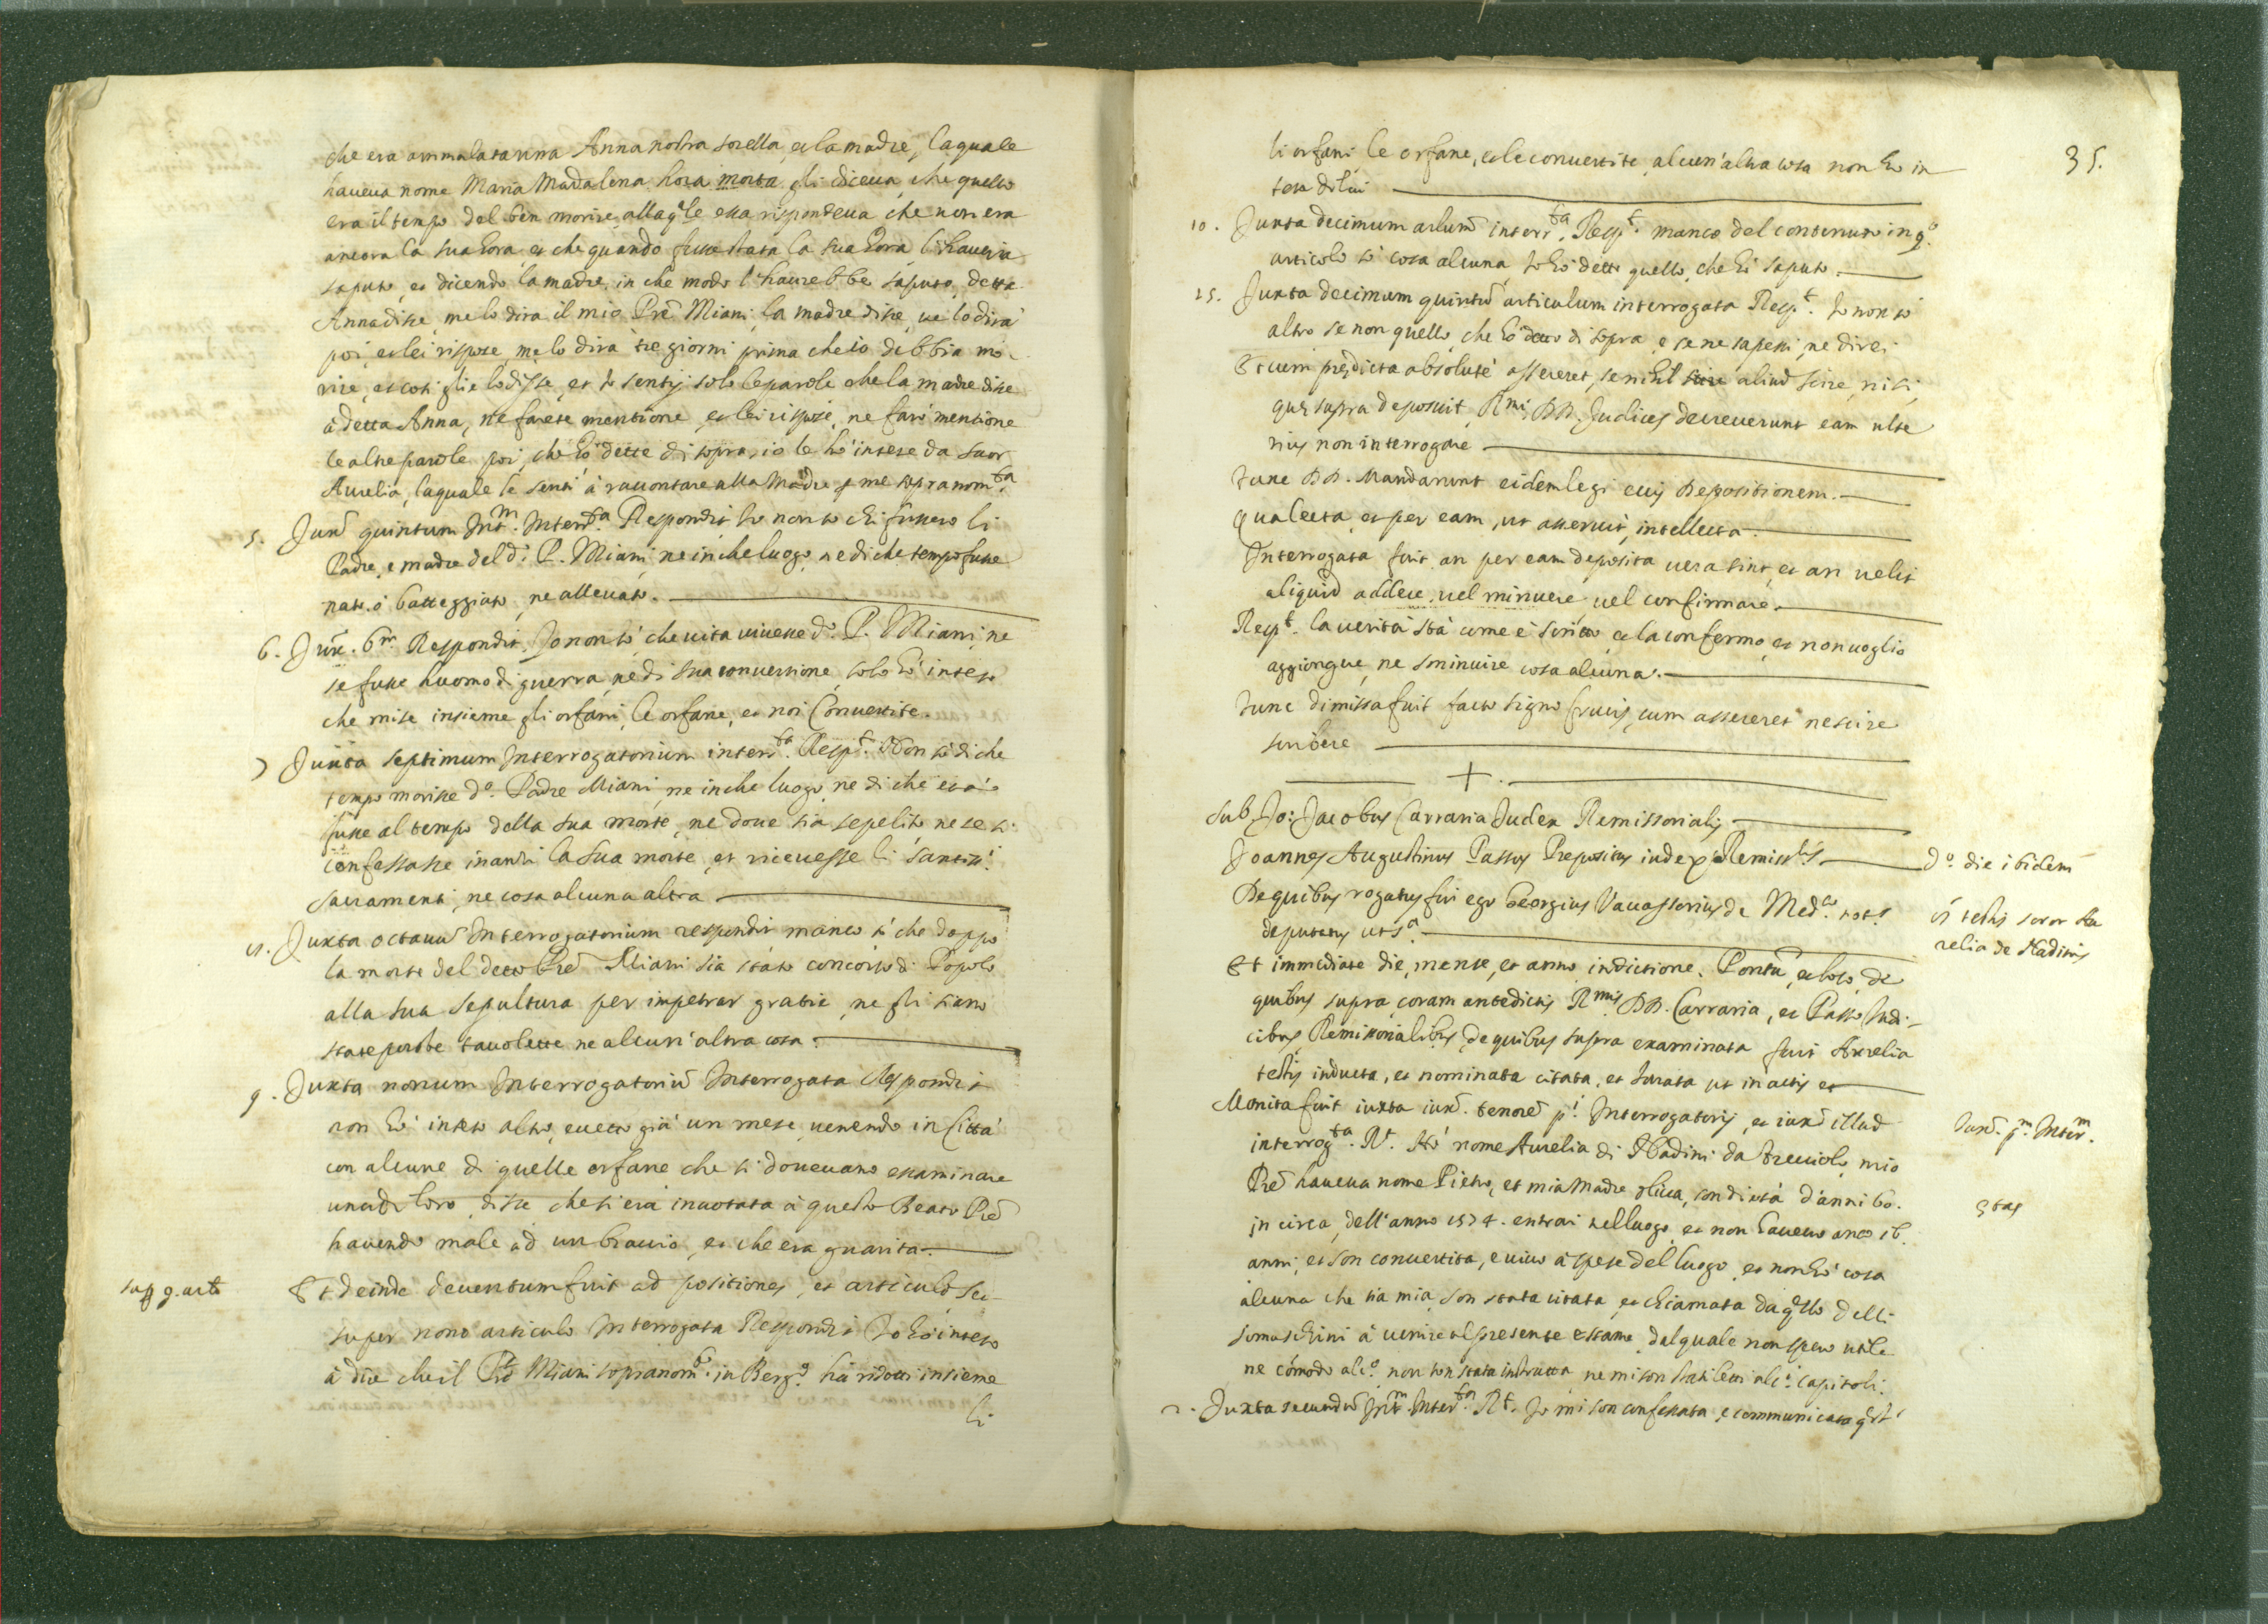 che era ammalata una Anna nostra sorella, et la madre, la quale
haueua nome Maria Madalena hora morta gli diceua, che quello
era il tempo del ben morire, alla qle essa rispondeua che non era
ancora la sua hora, et che quando fusse stata la sua hora, l'haueria
saputo, et dicendo la madre, in che modo l'haurebbe saputo, detta
Anna disse, me lo dira il mio Pre Miani, la madre disse, ue lo dirà
poi, et lei rispose, me lo dirà tre giorni prima che io debbia mo-
rire, et cosi glie lo disse, et io sentij solo le parole che la madre disse
à detta Anna, ne farete mentione, et lei rispose, ne farò mentione
le altre parole poi, che hò dette di sopra, io le hò intese da suor
Aurelia, laquale le sentì à raccontare alla Madre p me sopranomta.
5. Juxt quintum Intm. Interrta. Respondit Io non so chi fussero li
Padre, e madre del do. P. Miani, ne in che luogo, ne di che tempo fusse
nato, ò batteggiato, ne alleuato.
6. Jux. 6m. Respondit, Io non sò, che uita uiuesse do. P. Miani, ne
se fusse huomo di guerra, ne di sua conuersione, solo hò inteso
che mise insieme gli orfani, le orfane, et noi Conuertite.
7 Juxta septimum Interrogatorium interrta. Respt. Non sò di che
tempo morisse do. Padre Miani, ne in che luogo, ne di che età
fusse al tempo della sua morte, ne doue sia sepelito ne se si
confessasse inanzi la sua morte, et riceuesse li santissi.
sacramenti, ne cosa alcuna altra
Juxta octauu Interrogatorium respondit manco sò che doppo
la morte del detto Pre Miani sia stato concorso di Popolo
alla sua sepultura per impetrar gratie, ne gli siano
state portate tauolette ne alcun'altra cosa.
9. Juxta nonum Interrogatoriu Interrogata Respondit
non hò inteso altro, eccetto già un mese, uenendo in Città
con alcune di quelle orfane che si doueuano examinare
una di loro, disse che si era inuotata à questo Beato Pre
hauendo male ad un braccio, et che era guarita.
sup 9. arto
Et deinde deuentum fuit ad positiones, et articulos sci-
super nono articulo Interrogata Respondit Io hò inteso
à dire che il Pre Miani sopranomo. in Bergo. hà ridotti insieme
li
35.
li orfani le orfane, et le conuertite, alcun'altra cosa non hò in
teso di lui
10. Juxta decimum artum interrta. Respt. manco del contenuto in qo.
articolo sò cosa alcuna Io hò detto quello, che hò saputo.
15. Juxta decimum quintu articulum interrogata Respt. Io non sò
altro se non quello, che hò detto di sopra, e se ne sapessi, ne direi
Et cum predicta absolute assereret, se nihil scire aliud scire, nisi
que supra deposuit, Rmi DD. Judices decreuerunt eam ulte
rius non interrogare
Tunc DD. Mandarunt eidem legi eius Depositionem.
Qua lecta, et per eam, ut asseruit, intellecta.
Interrogata fuit, an per eam deposita uera sint, et an uelit
aliquid addere, uel minuere uel confirmare.
Respt. la uerità stà come è scritto, et la confermo, et non uoglio
aggiongere, ne sminuire cosa alcuna.
Tunc dimissa fuit facto signo Crucis, cum assereret nescire
scribere
+
Sub. Jo: Jacobus Carraria Judex Remissorialis
Joannes Augustinus Passus Prepositus iudex Remisslis
De quibus rogatus fui ego Georgius Vauassorius de Medo. nots
deputatus utsa.
do. die ibidem
testis soror Au
relia de Nadinis
Et immediate die, mense, et anno indictione. Pontu, et loco, de
quibus supra, coram antedictis Rmis DD. Carraria, et Passo Iudi-
cibus Remissorialibus, de quibus supra examinata fuit Aurelia
testis inducta, et nominata citata, et Iurata ut in actis et
Monita fuit iuxta iux. tenore pi. Interrogatorij, et iuxt illud
interrogta. Rt. Hò nome Aurelia di Nadini da Treuiolo, mio
Pre haueua nome Pietro, et mia Madre, son di età d'anni 60.
in circa, dell'anno 1574. entrai nel luogo, et non haueuo anco 16.
anni, et son conuertita, e uiuo à spese del luogo, et non hò cosa
alcuna che sia mia, son stata citata, et chiamata da qsto delli
somaschini à uenire al presente essame, dal quale non spero utile
ne comodo alco. non son stata instrutta, ne mi son stati letti alci. capitoli.
Iuxt. pm. Interm.
etas
2. Juxta secundu Intm. Interrta. Rt. Io mi son confessata, e communicata